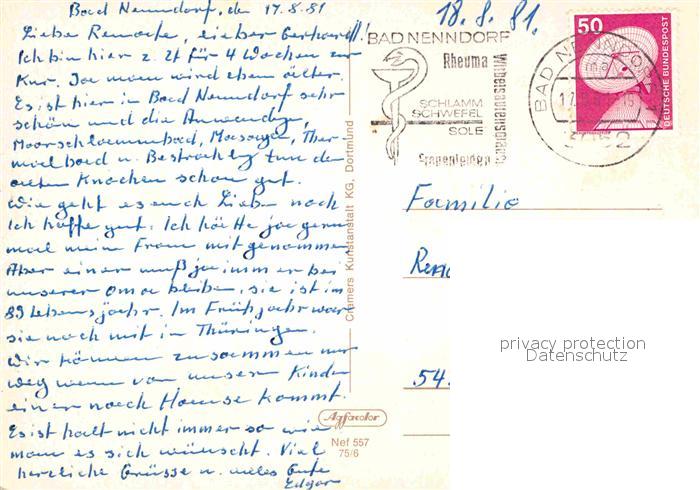 Bad Nenndorf, de 17.8.81
Liebe Renate, lieber Gerhard!!
Ich bin hier z. Zt für 4 Wochen zur
Kur. Ja man wird eben älter.
Es ist hier in Bad Nenndorf sehr
schön und die Anwendg,
Moorschlammbad, Massage, Ther
malbad u. Bestrahlg tun den
alten Knochen schon gut.
Wie geht es euch Lieben noch
Ich hoffe gut. Ich hätte ja gern
mal meine Frau mit genommen
Aber einer muß ja immer bei
unserer Oma bleiben, sie ist im
89 Lebensjahr. Im Frühjahr war
sie noch mit in Thüringen.
Wir können zusammen nur
weg wenn von unseren Kinder
einer nach Hause kommt.
Es ist halt nicht immer so wie
man es sich wünscht. Viel
herzliche Grüsse u. alles Gute
Edgar
Cramers Kunstanstalt KG, Dortmund
Agfacolor
Nef 557
75/6
18.8.81.
BAD NENNDORF
Rheuma
SCHLAMM
SCHWEFEL
SOLE
Frauenleiden
Wirbelsäulenschäden
BAD NENNDORF
3052
50
DEUTSCHE BUNDESPOST
Familie
54.
privacy protection
Datenschutz